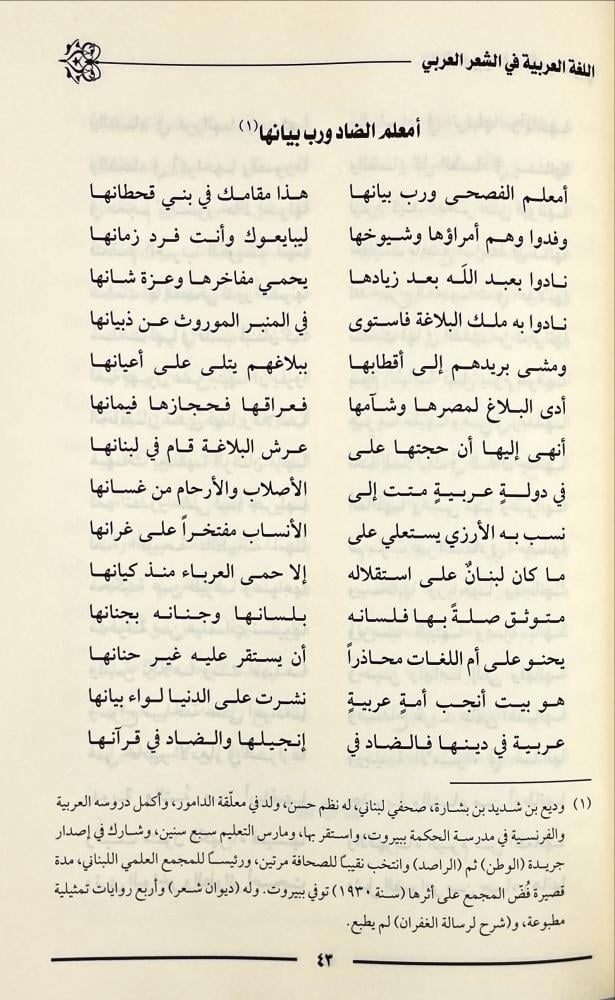 اللغة العربية في الشعر العربي
أمعلم الضاد ورب بيانها(١)
أمعلم الفصحى ورب بيانها هذا مقامك في بني قحطانها
وفدوا وهم أمراؤها وشيوخها ليبايعوك وأنت فرد زمانها
نادوا بعبد اللَه بعد زيادها يحمي مفاخرها وعزة شانها
نادوا به ملك البلاغة فاستوى في المنبر الموروث عن ذبيانها
ومشى بريدهم إلى أقطابها ببلاغهم يتلى على أعيانها
أدى البلاغ لمصرها وشآمها فعراقها فحجازها فيمانها
أنهى إليها أن حجتها على عرش البلاغة قام في لبنانها
في دولةٍ عربيةٍ متت إلى الأصلاب والأرحام من غسانها
نسب به الأرزي يستعلي على الأنساب مفتخراً على غرانها
ما كان لبنانٌ على استقلاله إلا حمى العرباء منذ كيانها
متوثق صلةً بها فلسانه بلسانها وجنانه بجنانها
يحنو على أم اللغات محاذراً أن يستقر عليه غير حنانها
هو بيت أنجب أمةٍ عربيةٍ نشرت على الدنيا لواء بيانها
عربية في دينها فالضاد في إنجيلها والضاد في قرآنها
(١) وديع بن شديد بن بشارة، صحفي لبناني، له نظم حسن، ولد في معلّقة الدامور، وأكمل دروسه العربية
والفرنسية في مدرسة الحكمة ببيروت، واستقر بها، ومارس التعليم سبع سنين، وشارك في إصدار
جريدة (الوطن) ثم (الراصد) وانتخب نقيبًا للصحافة مرتين، ورئيسًا للمجمع العلمي اللبناني، مدة
قصيرة فُضّ المجمع على أثرها (سنة ١٩٣٠) توفي ببيروت. وله (ديوان شعر) وأربع روايات تمثيلية
مطبوعة، و(شرح لرسالة الغفران) لم يطبع.
٤٣